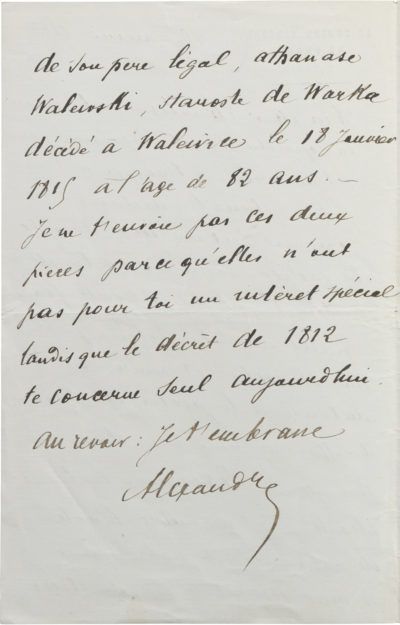 de son pere légal, athanase
Walewski, staroste de Warka
décédé à Walewice le 18 Janvier
1815 à l'age de 82 ans. —
Je ne t'envoie pas ces deux
pieces parcequ'elles n'ont
pas pour toi un intèret spécial
tandisque le décrèt de 1812
te concerne seul aujourdhui.
au revoir: Je t'embrasse
Alexandre